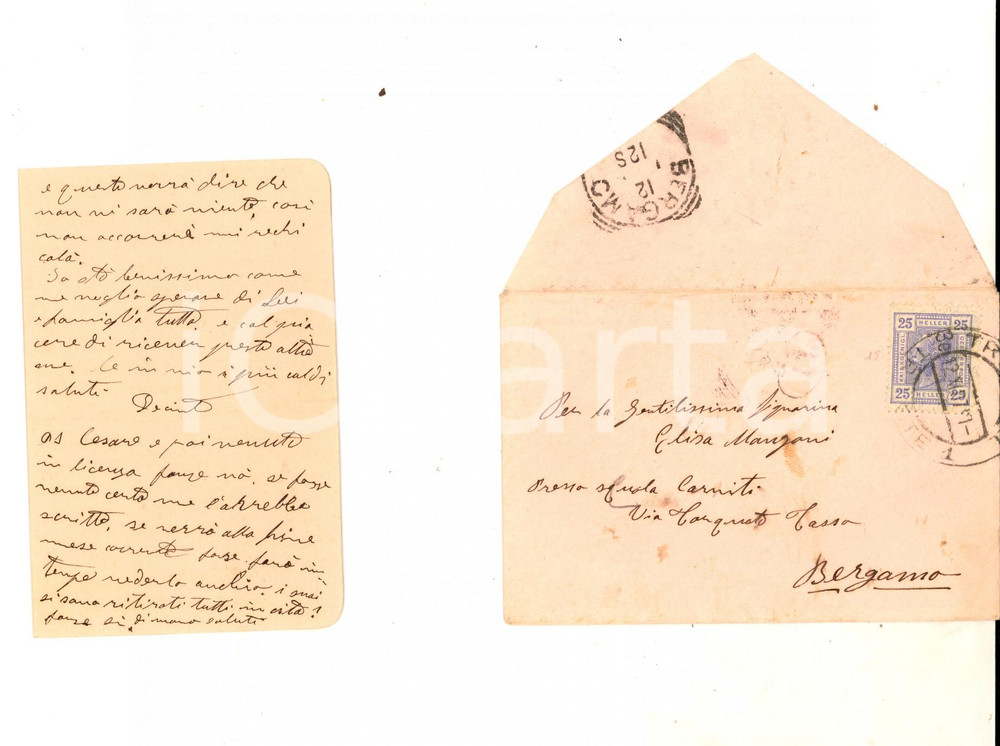 e questo vorrà dire che
non vi sarà niente, così
non occorrerà mi rechi
colà.
Io stò benissimo come
me voglio sperare di Lei
e famiglia tutta, e col pia
cere di ricever presto altre
sue. Le invio i più caldi
saluti
PS Cesare e poi venuto
in licenza forse nò, se fosse
venuto certo me l'avrebbe
scritto, se verrà alla fine
mese corrente forse farò in
tempo vederlo anch'io. i suoi
si sono ritirati tutti in città?
forse si, di nuovo saluti
BERGAMO
12
12S
25 HELLER 25
25 HELLER 25
TR
1
Per la Gentilissima Signorina
Elisa Manzoni
Presso scuola Carniti
Via Torquato Tasso
Bergamo
iCharta